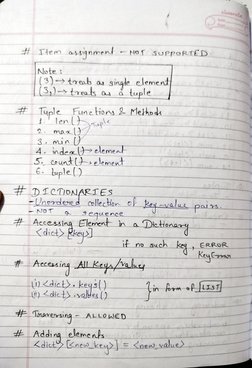 # Item assignment - NOT SUPPORTED
Note:
(3) → treats as single element
(3,) → treats as a tuple
# Tuple Functions & Methods
1. len()
2. max() tuple
3. min()
4. index() → element
5. count() → element
6. tuple()
# DICTIONARIES
- Unordered collection of key-value pairs.
- NOT a sequence
# Accessing Element in a Dictionary
<dict>[<key>]
if no such key, ERROR
KeyError
# Accessing All Keys/values
(i) <dict>.keys()
(ii) <dict>.values() } in form of LIST
# Traversing - ALLOWED
# Adding elements
<dict>[<new_key>] = <new_value>